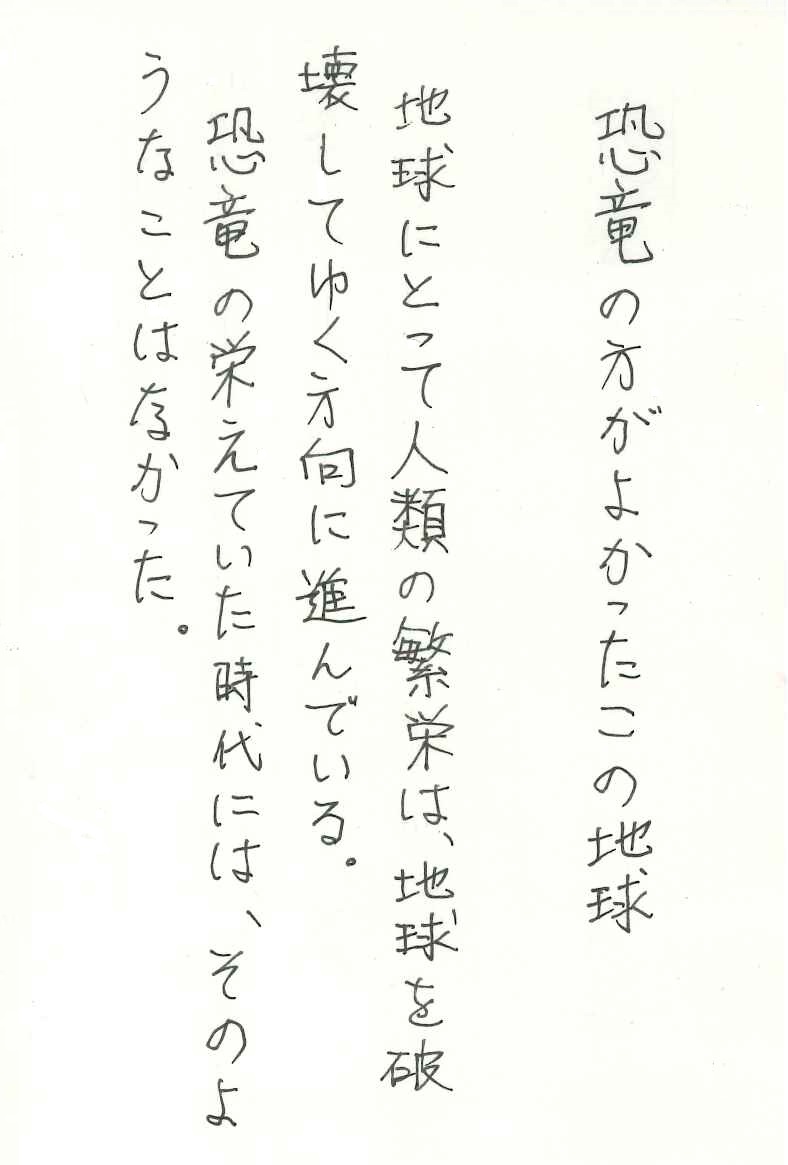 恐竜の方がよかったこの地球
地球にとって人類の繁栄は、地球を破
壊してゆく方向に進んでいる。
恐竜の栄えていた時代には、そのよ
うなことはなかった。